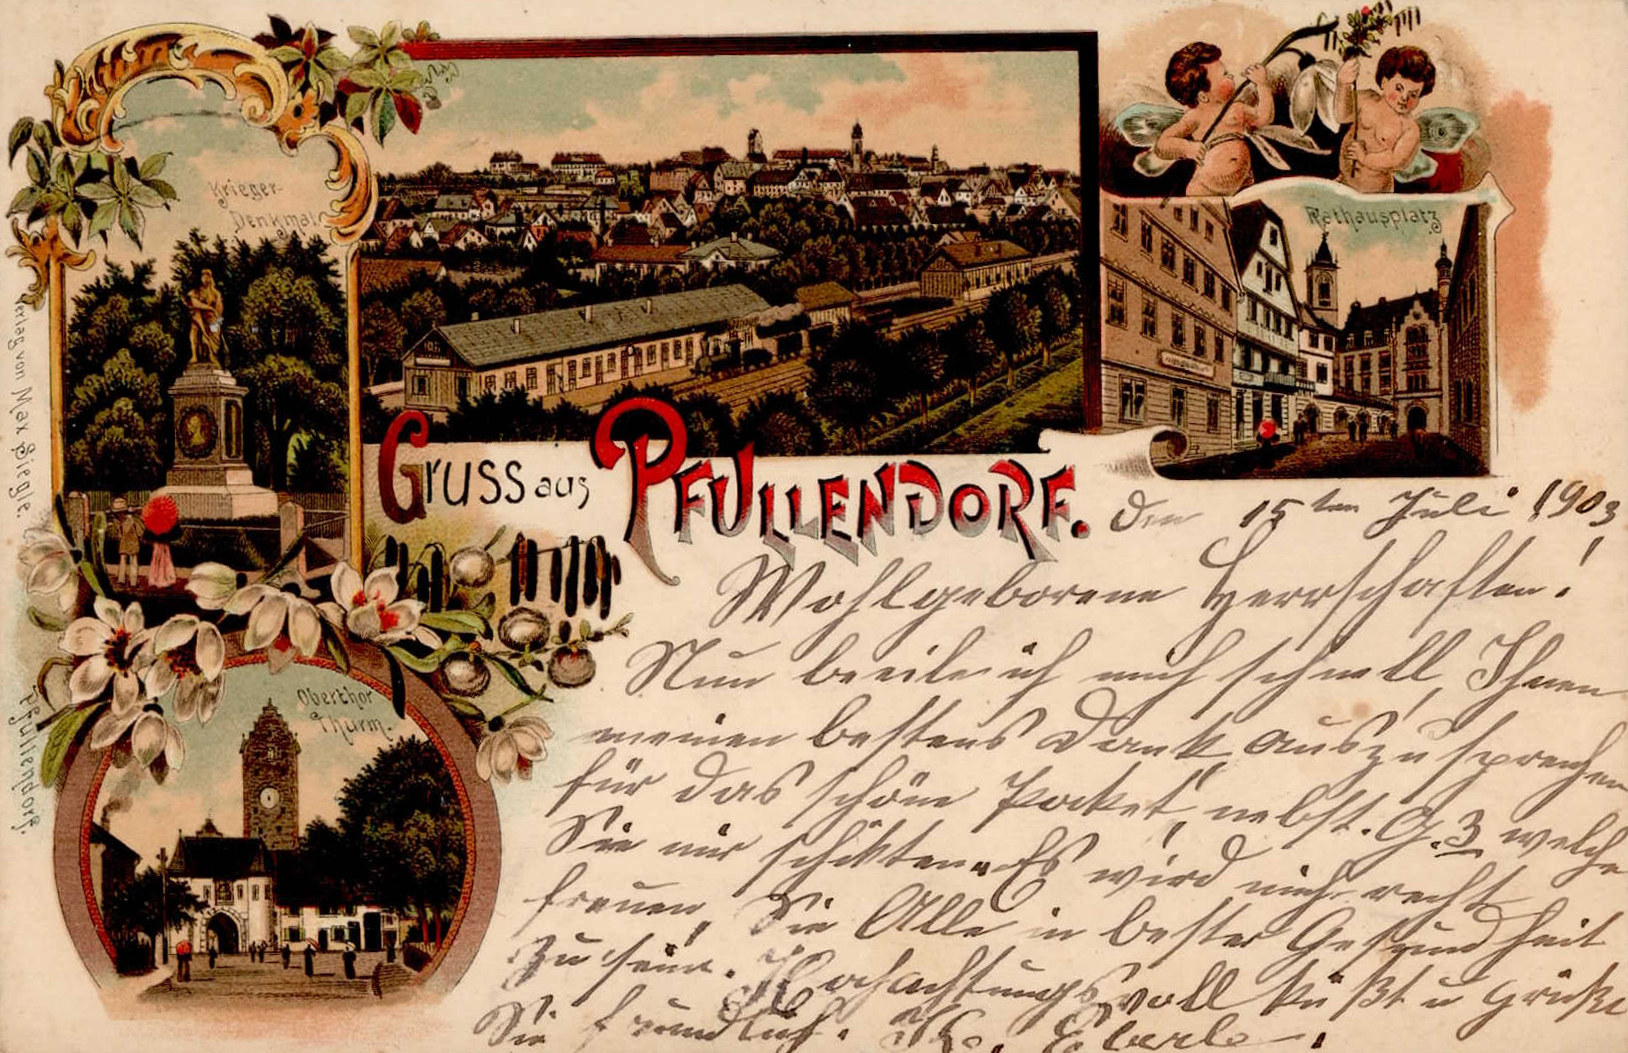 Krieger-
Denkmal.
Rathausplatz
Gruss aus PFULLENDORF.
Oberthor
Thurm.
Verlag von Max Siegle. Pfullendorf.
Den 15ten Juli 1903
Wohlgeborene Herrschaften!
Nun beeile ich mich schnell, Ihnen
meinen bestens Dank auszusprechen
für das schöne Packet, nebst. G. 3 welche
Sie mir schikten. Es wird mich recht
freuen, Sie Alle in bester Gesundheit
zu sein. Hochachtungsvoll küßt u grüßt
Sie freundlich. Eberle.